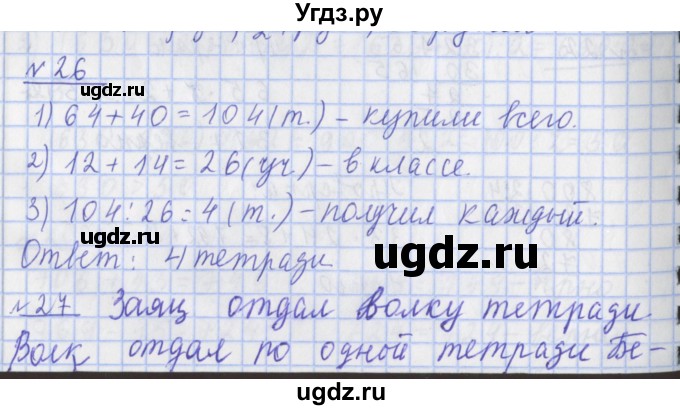 Угдз.ру
№26
1) 64+40=104(т.) – купили всего.
2) 12+14=26(уч.) – в классе.
3) 104:26=4(т.) – получил каждый.
Ответ: 4 тетради
№27 Заяц отдал Волку тетради.
Волк отдал по одной тетради Бе-
ugdz.ru
ugdz.ru
ugdz.ru
ugdz.ru
ugdz.ru
ugdz.ru
ugdz.ru